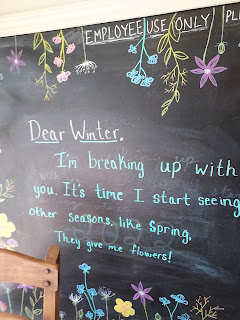 EMPLOYEE USE ONLY
Dear Winter,
I'm breaking up with
you. It's time I start seeing
other seasons, like Spring.
They give me flowers!